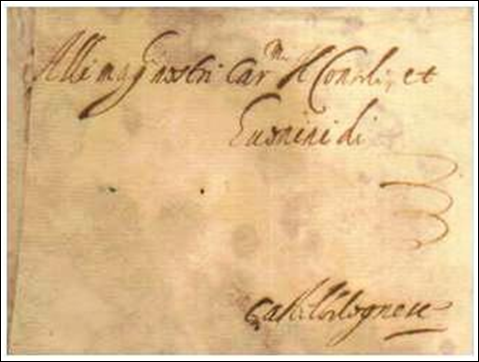 Alli mag nostri Car.mi li Consoli, et
Huomini di
Castelbolognese